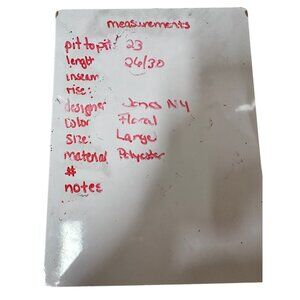 measurements
pit to pit: 23
length 26/30
inseam
rise:
designer Jones NY
Color Floral
Size: Large
material Polyester
#
notes